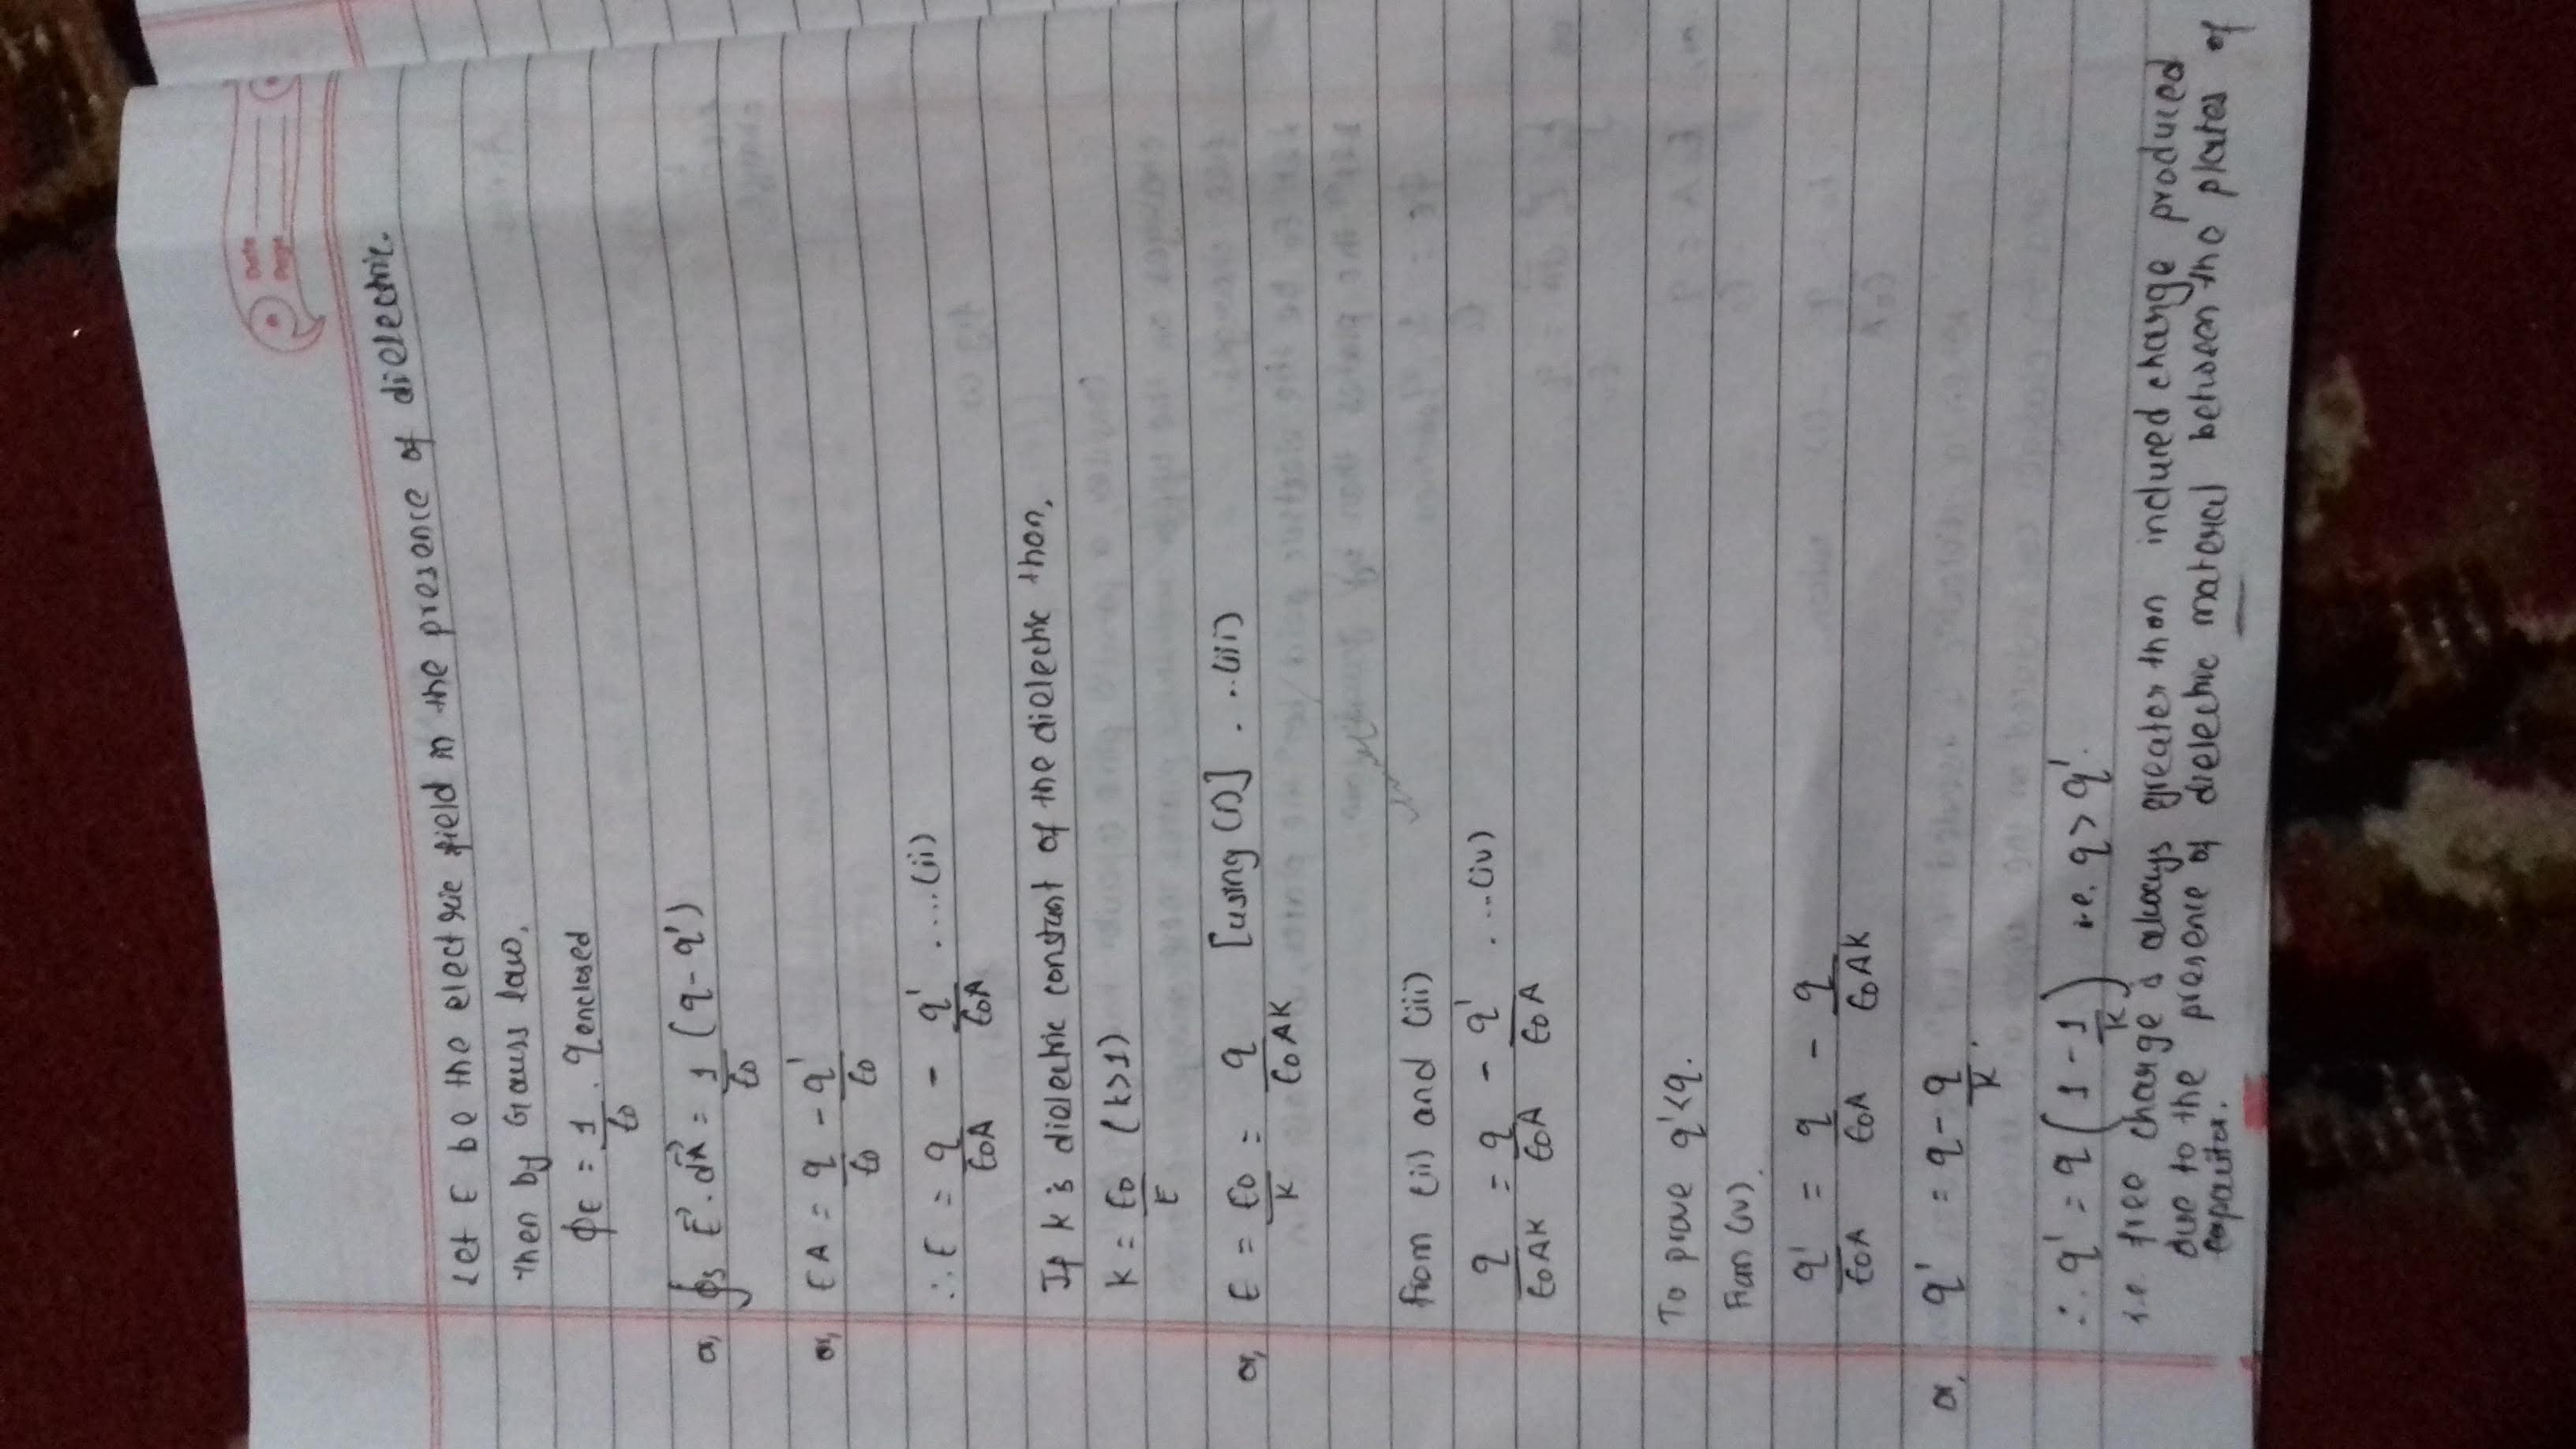 Date
Page
Let E be the electric field in the presence of dielectric.
Then by Gauss law,
ΦE = 1/ε0 . qenclosed
or, ∮s E⃗ . dA⃗ = 1/ε0 (q - q')
or, EA = q/ε0 - q'/ε0
∴ E = q/ε0A - q'/ε0A ....(ii)
If k is dielectric constant of the dielectric then,
k = E0/E (k>1)
or, E = E0/k = q/ε0AK [using (i)] ...(iii)
from (ii) and (iii)
q/ε0AK = q/ε0A - q'/ε0A ....(iv)
To prove q'<q.
From (iv),
q'/ε0A = q/ε0A - q/ε0AK
or, q' = q - q/k.
∴ q' = q(1 - 1/k) i.e. q > q'.
i.e. free charge is always greater than induced charge produced
due to the presence of dielectric material between the plates of
capacitor.